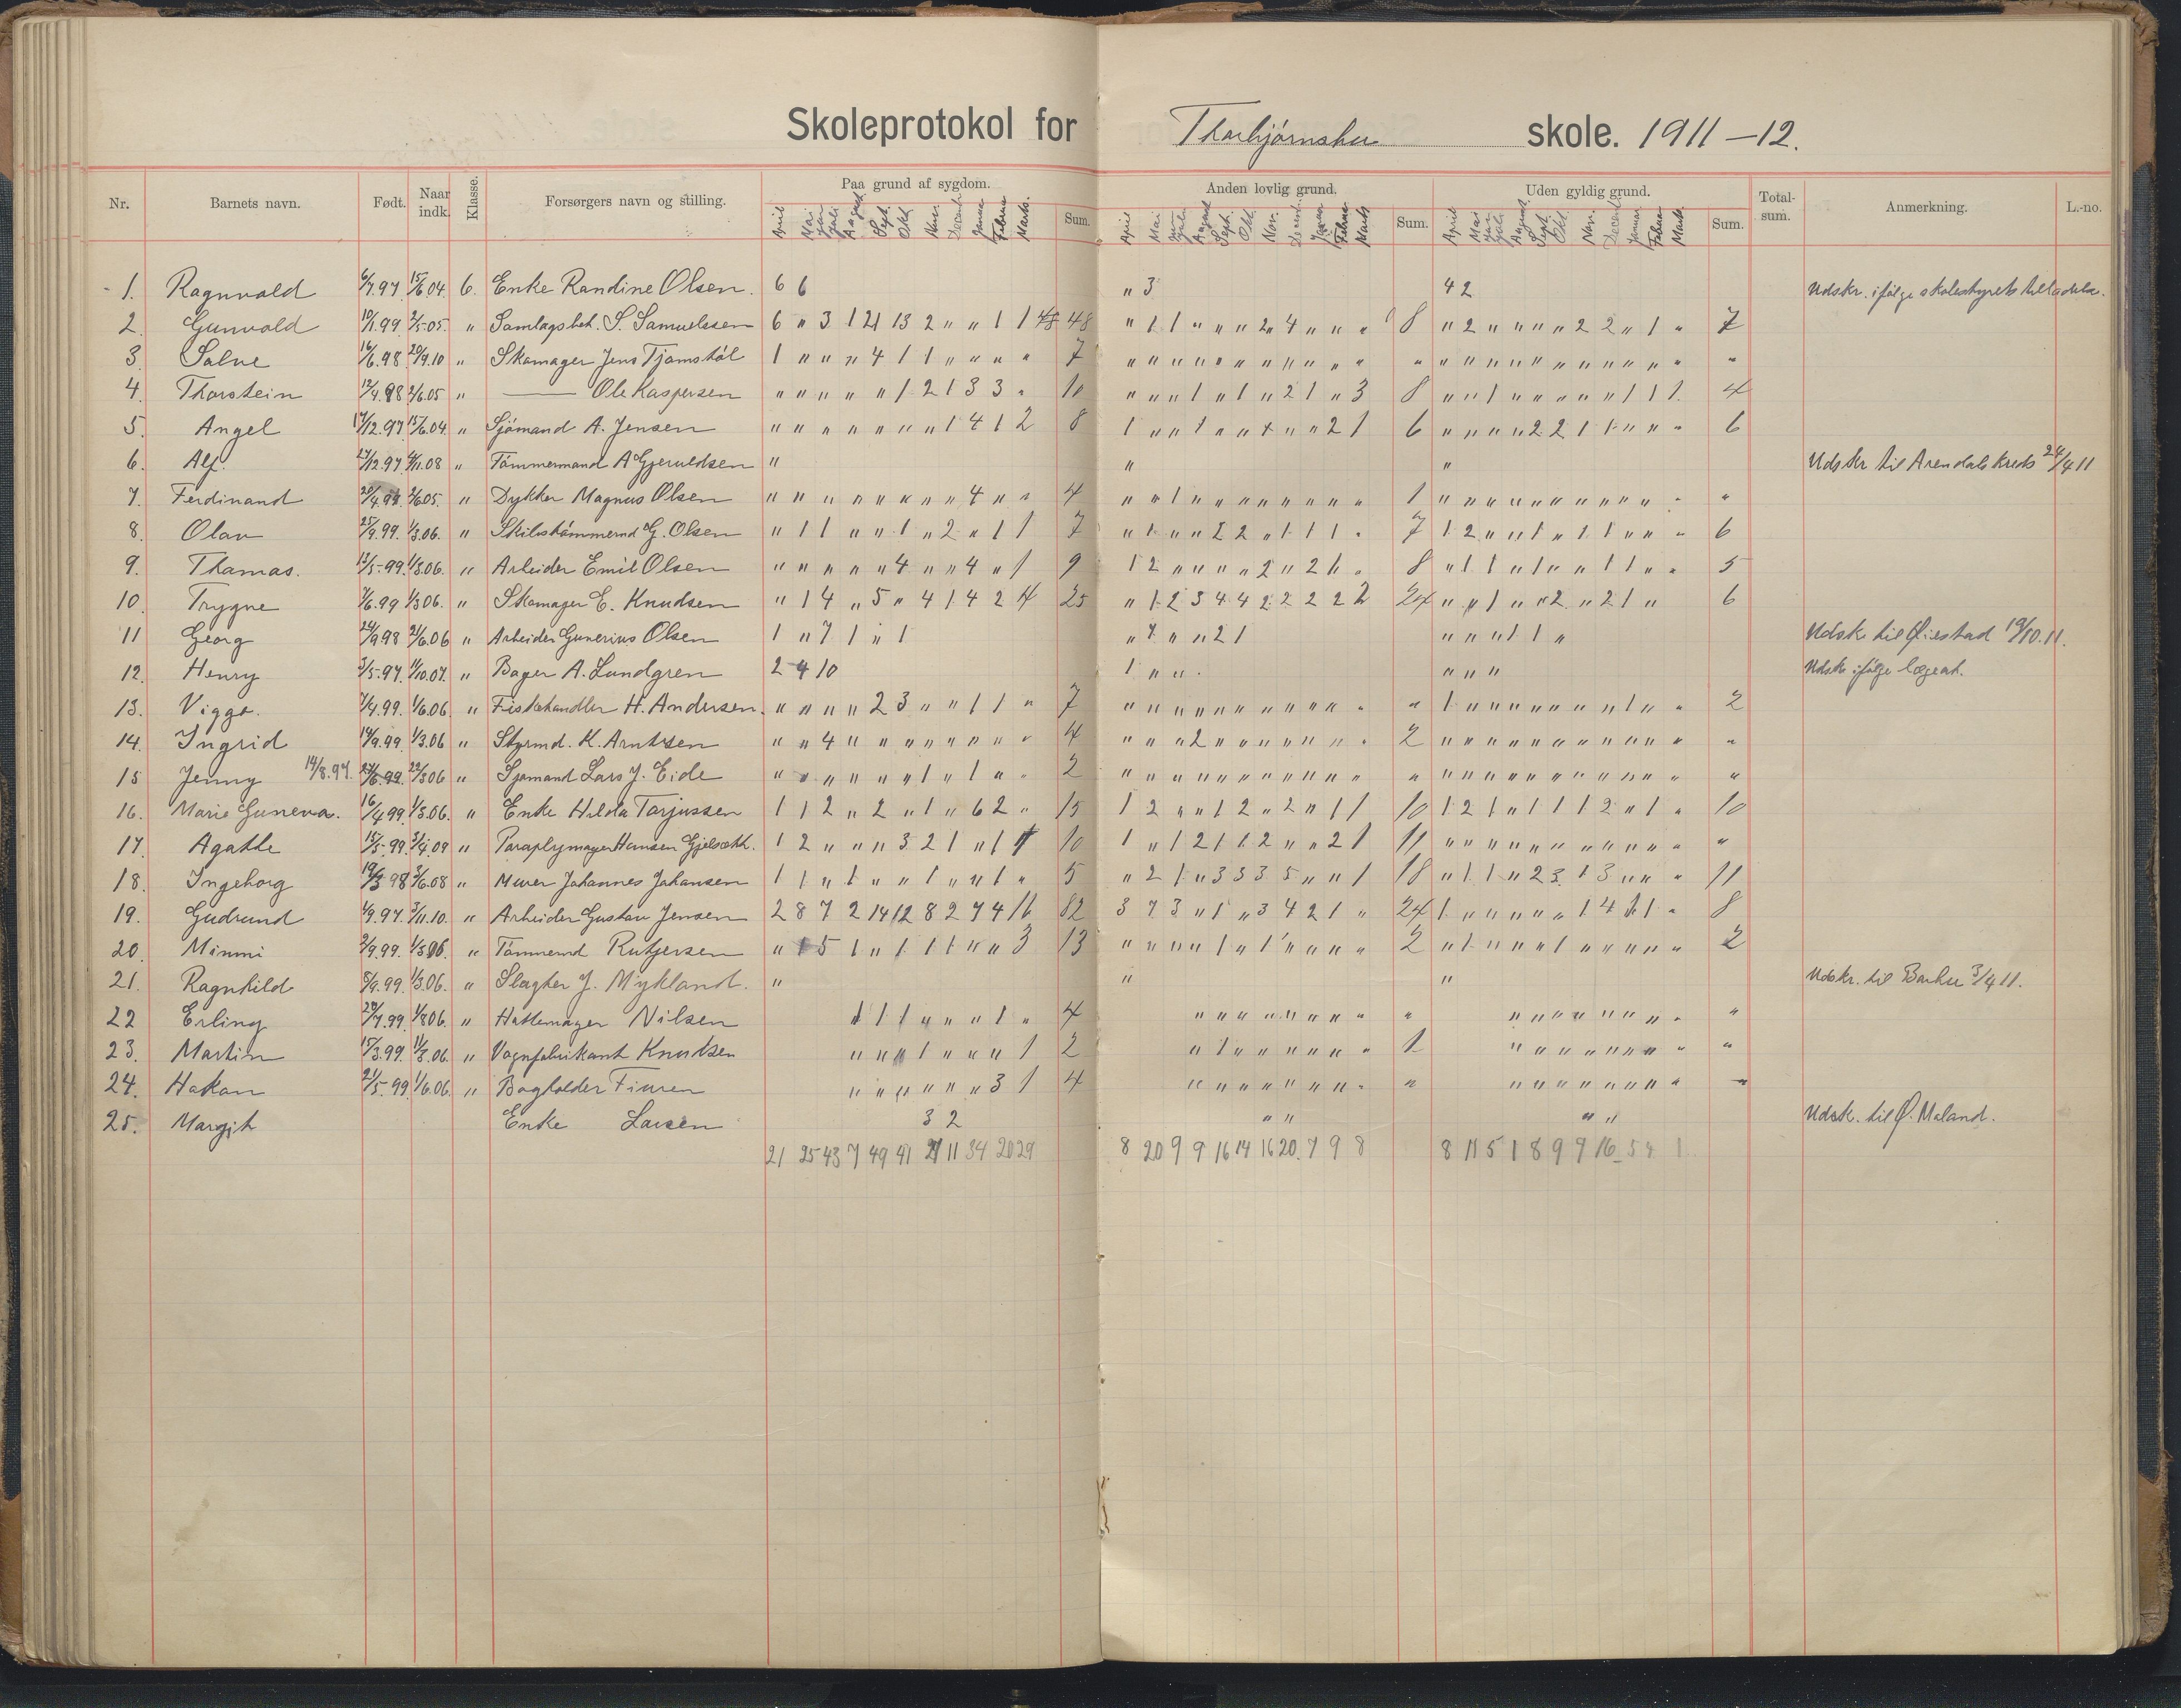 Skoleprotokol for Thorbjørnsbu skole. 1911-12.
Nr. Barnets navn. Født. Naar indk. Klasse. Forsørgers navn og stilling. Paa grund af sygdom. Sum. Anden lovlig grund. Sum. Uden gyldig grund. Sum. Total-sum. Anmerkning. L.-no.
April Mai Juni Juli August Sept. Okt. Nov. Decemb. Januar Februar Marts. April Mai Juni Juli August Sept. Okt. Nov. Decemb. Januar Februar Marts April Mai Juni Juli August Sept. Okt. Nov. Decemb. Januar Februar Marts.
1. Ragnvald 6/7.97. 15/6 04. 6. Enke Randine Olsen. 6 6 " 3 4 2 Udskr. ifølge skolestyrets tilladelse.
2. Gunvald 10/1.99 2/5.05. " Samlagsbet. S. Samuelssen 6 " 3 1 21 13 2 " " 1 1 48 8 7
3. Salve 16/6.98 20/9.10 " Skomager Jens Tjomstøl 1 " " " 4 1 1 " " " " 7 " "
4. Thorstein 12/4.98 2/6.05 " — Ole Kaspersen " " " " " 1 2 1 3 3 " 10 8 4
5. Angel 17/12.97 15/6.04. " Sjømand A. Jensen " " " " " " " 1 4 1 2 8 6 6
6. Alf. 27/12.97 4/11.08 " Tømmermand A Gjeruldsen " " " Udskr til Arendals kreds 24/4 11
7. Ferdinand 20/4.99. 2/6.05. " Dykker Magnus Olsen " " " " " " " " 4 " " 4 1 "
8. Olav 25/9.99. 1/3.06. " Skibstømmermd G. Olsen " 1 1 " " 1 " 2 " 1 1 7 7 6
9. Thomas. 12/5.99. 1/3.06. " Arbeider Emil Olsen " " " " " 4 " " 4 " 1 9 8 5
10. Trygve 7/6.99 1/3 06. " Skomager E. Knudsen " 1 4 " 5 " 4 1 4 2 4 25 " 1 2 3 4 4 2 2 2 2 2 24 6
11 Georg 24/9 98 21/6.06 " Arbeider Gunerius Olsen 1 " 7 1 " 1 " 7 " " 2 1 " " " 1 1 " Udskr til Øiestad 19/10.11.
12. Henry 3/5.97. 11/10.07. " Bager A. Lundgren 2 4 10 1 " " " " " Udskr ifølge lægeat.
13. Viggo. 7/4.99. 1/6.06. " Fiskehandler H. Andersen. " " " " 2 3 " " 1 1 " 7 " 2
14. Ingrid 19/9.99. 1/3.06 " Styrmd. K. Arntzen " " 4 " " " " " " " " 4 2 "
15 Jenny 14/8.97. 22/3 06 " Sjømand Lars J. Eide " " " " " " 1 " 1 " " 2 " "
16. Marie Guneva. 16/4 99. 1/3.06. " Enke Hilda Tarjussen 1 1 2 " 2 " 1 " 6 2 " 15 10 10
17. Agathe 15/5.99. 3/4.09 " Paraplymager Hansen Gjelsæth. 1 2 " " " 3 2 1 " 1 10 11 "
18. Ingeborg 19/3 98 3/6.08 " Murer Johannes Johansen 1 1 " 1 " " 1 " " 1 " 5 18 11
19. Gudrund 4/9.97. 3/11.10. " Arbeider Gustav Jensen 2 8 7 2 14 12 8 2 7 4 16 82 3 7 3 " 1 " 3 4 2 1 " 24 8
20. Minmi 2/9.99. 1/3 06. " Tømmermd Rutgersen 13 2 2
21. Ragnhild 8/9.99. 1/3.06. " Slagter J. Mykland. " " " Udskr. til Barbu 3/4 11.
22 Erling 20/7.99. 1/8 06. " Hattemager Nilsen 1 1 1 " " " 1 " 4 " "
23. Martin 15/3.99. 1/3.06. " Vognfabrikant Knudsen " " " 1 " " " 1 2 1 "
24. Hakon 21/5.99. 1/6.06. " Bogholder Finsen " " " " " " 3 1 4 " "
25. Margit Enke Larsen 3 2 " " " " Udsk. til Ø. Moland.
21 25 43 7 49 41 21 11 34 20 29 8 20 9 9 16 14 16 20. 7 9 8 8 11 5 1 8 9 9 16 5 4 1